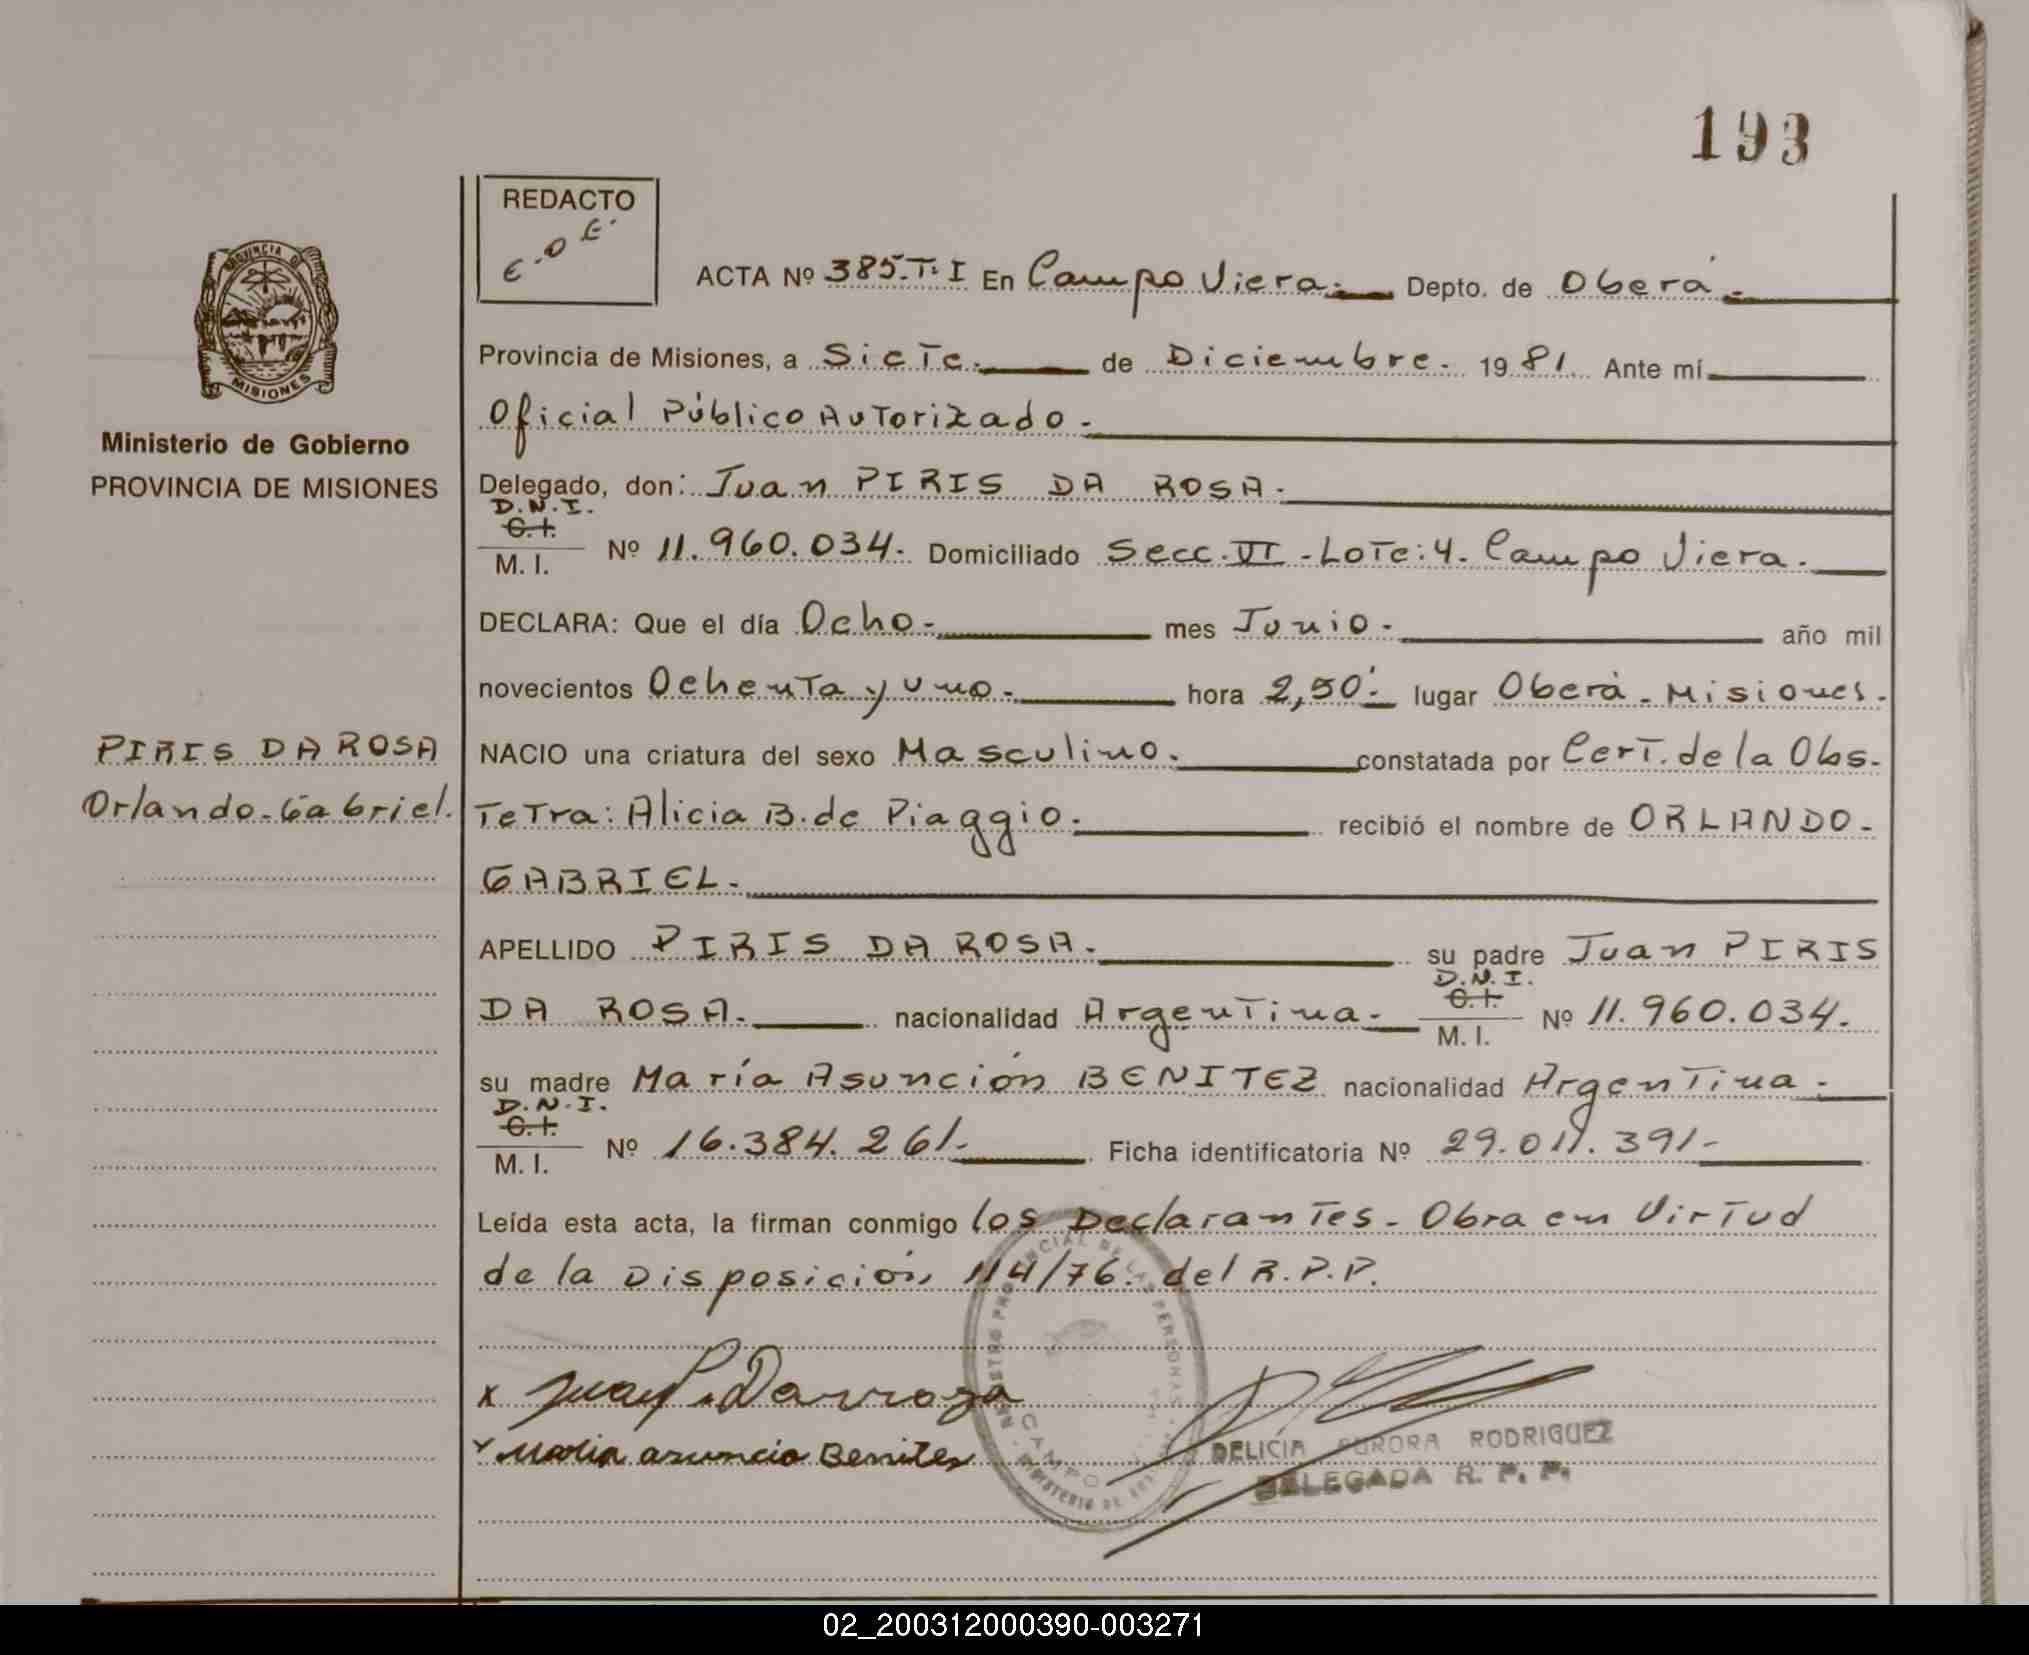 193
REDACTO
E. O E.
ACTA Nº 385.T.I En Campo Viera.- Depto. de Oberá.-
Provincia de Misiones, a Siete.- de Diciembre. 1981. Ante mí
Oficial Público Autorizado.-
Delegado, don: Juan PIRIS DA ROSA.-
D.N.I.
C.I.
M. I.
Nº 11.960.034.- Domiciliado Secc. VI - Lote: 4. Campo Viera.-
DECLARA: Que el día Ocho.- mes Junio.- año mil
novecientos Ochenta y uno.- hora 2,50.- lugar Oberá - Misiones.
NACIO una criatura del sexo Masculino.- constatada por Cert. de la Obs-
tetra: Alicia B. de Piaggio.- recibió el nombre de ORLANDO-
GABRIEL.-
APELLIDO PIRIS DA ROSA.- su padre Juan PIRIS
D.N.I.
C.I.
M. I.
DA ROSA.- nacionalidad Argentina.- Nº 11.960.034.
su madre María Asunción BENITEZ nacionalidad Argentina.-
D.N.I.
C.I.
M. I.
Nº 16.384.261.- Ficha identificatoria Nº 29.011.391-
Leída esta acta, la firman conmigo los Declarantes - Obra en Virtud
de la Disposición 114/76. del R.P.P.
x Juan P. Darroza
x Maria asuncio Beniter
DELICIA AURORA RODRIGUEZ
DELEGADA R. P. P.
REGISTRO PROVINCIAL DE LAS PERSONAS
CAMPO
MINISTERIO DE
PROVINCIA DE
MISIONES
Ministerio de Gobierno
PROVINCIA DE MISIONES
PIRIS DA ROSA
Orlando-Gabriel.
02_200312000390-003271